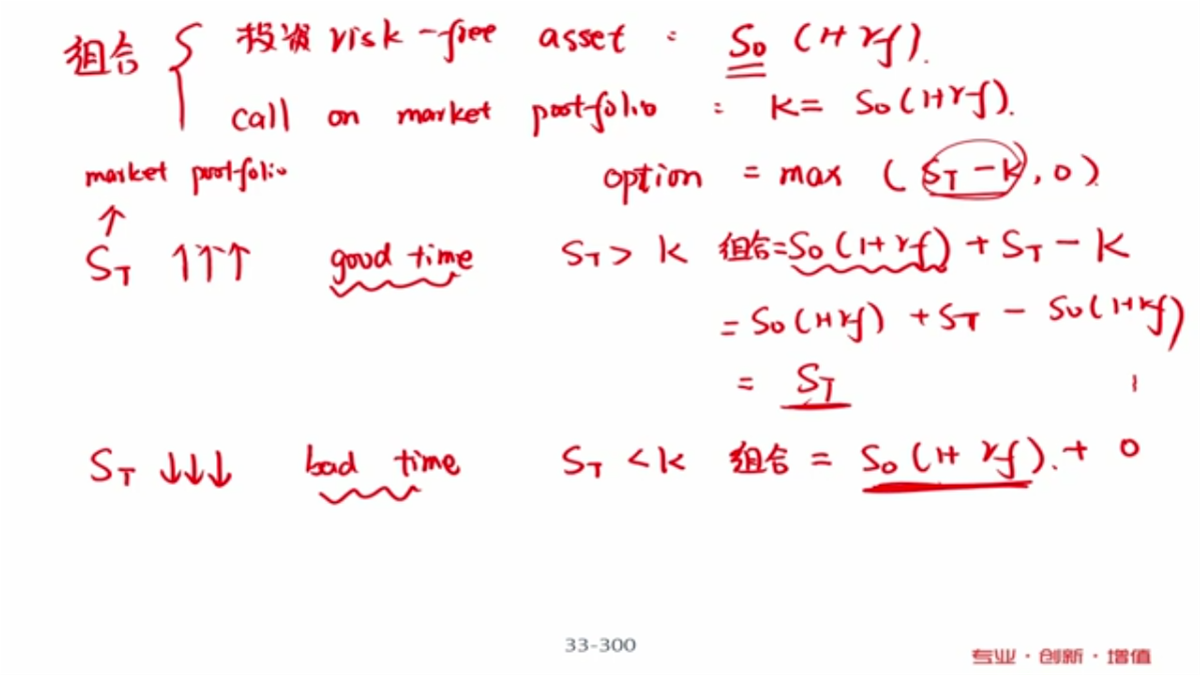 组合 { 投资 risk-free asset : S₀ (1+rf).
call on market portfolio : K = S₀(1+rf).
market portfolio option = max (S_T - K, 0)
↑
S_T ↑↑↑ good time S_T > K 组合=S₀(1+rf) + S_T - K
= S₀(1+rf) + S_T - S₀(1+rf)
= S_T
S_T ↓↓↓ bad time S_T < K 组合 = S₀(1+rf).+ 0
33-300
专业·创新·增值